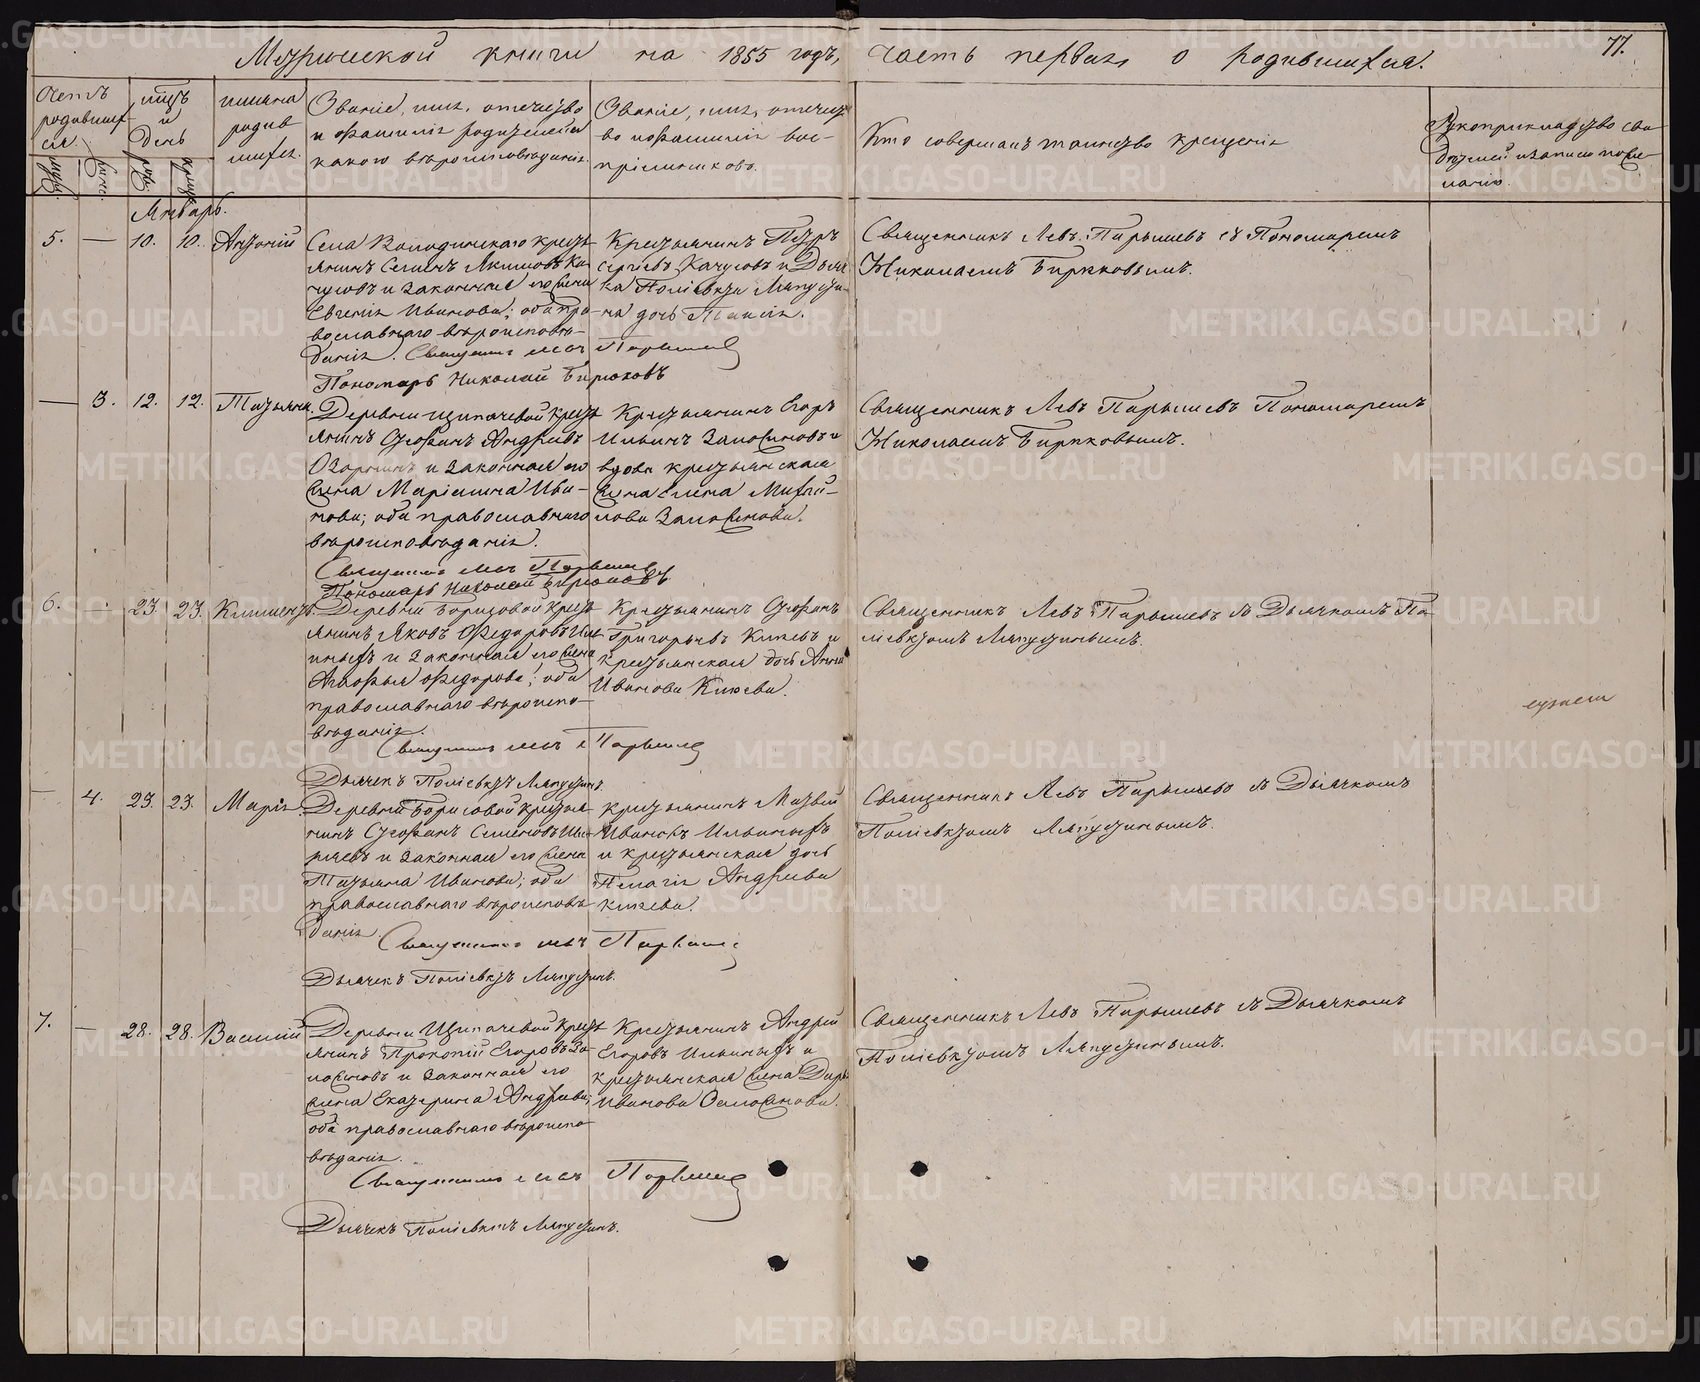 Метрической книги на 1855 годъ, часть первая, о родившихся.
77.
Счетъ родившихся.
мѣсяцъ и день
имяна родившихся.
Званіе, имя, отечество
и фамилія родителей и
какого вѣроисповѣданія.
Званіе, имя, отечест-
во и фамилія вос-
пріемниковъ.
Кто совершалъ таинство крещенія
Рукоприкладство сви-
дѣтелей и записи по же-
ланію.
Январь.
5. — 10. 10. Антоній
Села Володинскаго кресть-
янинъ Семенъ Якимовъ Ка-
чусовъ и законная его жена
Евгенія Иванова; оба пра-
вославнаго вѣроисповѣ-
данія. Священникъ Левъ Парышевъ
Пономарь Николай Бирюковъ
Крестьянинъ Петръ
Сергѣевъ Качусовъ и Дьяч-
ка Поліевкта Ляпусти-
на дочь Таисія.
Священникъ Левъ Парышевъ съ Пономаремъ
Николаемъ Бирюковымъ.
— 3. 12. 12. Татьяна.
Деревни Щипачевой кресть-
янинъ Стефанъ Андреевъ
Озорнинъ и законная его
жена Маріамна Ива-
нова; оба православнаго
вѣроисповѣданія.
Священникъ Левъ Парышевъ
Пономарь Николай Бирюковъ
Крестьянинъ Егоръ
Ильинъ Заложновъ и
вдова крестьянская
жена Елена Михай-
лова Заложнова.
Священникъ Левъ Парышевъ Пономаремъ
Николаемъ Бирюковымъ.
6. — 23. 23. Климентъ.
Деревни Борисовой кресть-
янинъ Яковъ Федоровъ Иль-
иныхъ и законная его жена
Агафья Федорова; оба
православнаго вѣроиспо-
вѣданія.
Священникъ Левъ Парышевъ
Дьячекъ Поліевктъ Ляпустинъ.
Крестьянинъ Стефанъ
Григорьевъ Князевъ и
крестьянская дочь Анна
Иванова Князева.
Священникъ Левъ Парышевъ съ Дьячкомъ По-
ліевктомъ Ляпустинымъ.
— 4. 23. 23. Марія.
Деревни Борисовой крестья-
нинъ Стефанъ Семеновъ
и законная его жена
Татьяна Иванова; оба
православнаго вѣроисповѣ-
данія.
Священникъ Левъ Парышевъ
Дьячекъ Поліевктъ Ляпустинъ.
крестьянинъ Матвей
Ивановъ Ильиныхъ
и крестьянская дочь
Пелагія Андреева
Князева.
Священникъ Левъ Парышевъ съ Дьячкомъ
Поліевктомъ Ляпустинымъ.
7. — 28. 28. Василій
Деревни Щипачевой кресть-
янинъ Прокопій Егоровъ За-
ложновъ и законная его
жена Екатерина Андреева;
оба православнаго вѣроиспо-
вѣданія.
Священникъ Левъ Парышевъ
Дьячекъ Поліевктъ Ляпустинъ.
Крестьянинъ Андрей
Егоровъ Ильиныхъ и
крестьянская жена Дарья
Иванова Заложнова.
Священникъ Левъ Парышевъ съ Дьячкомъ
Поліевктомъ Ляпустинымъ.
METRIKI.GASO-URAL.RU